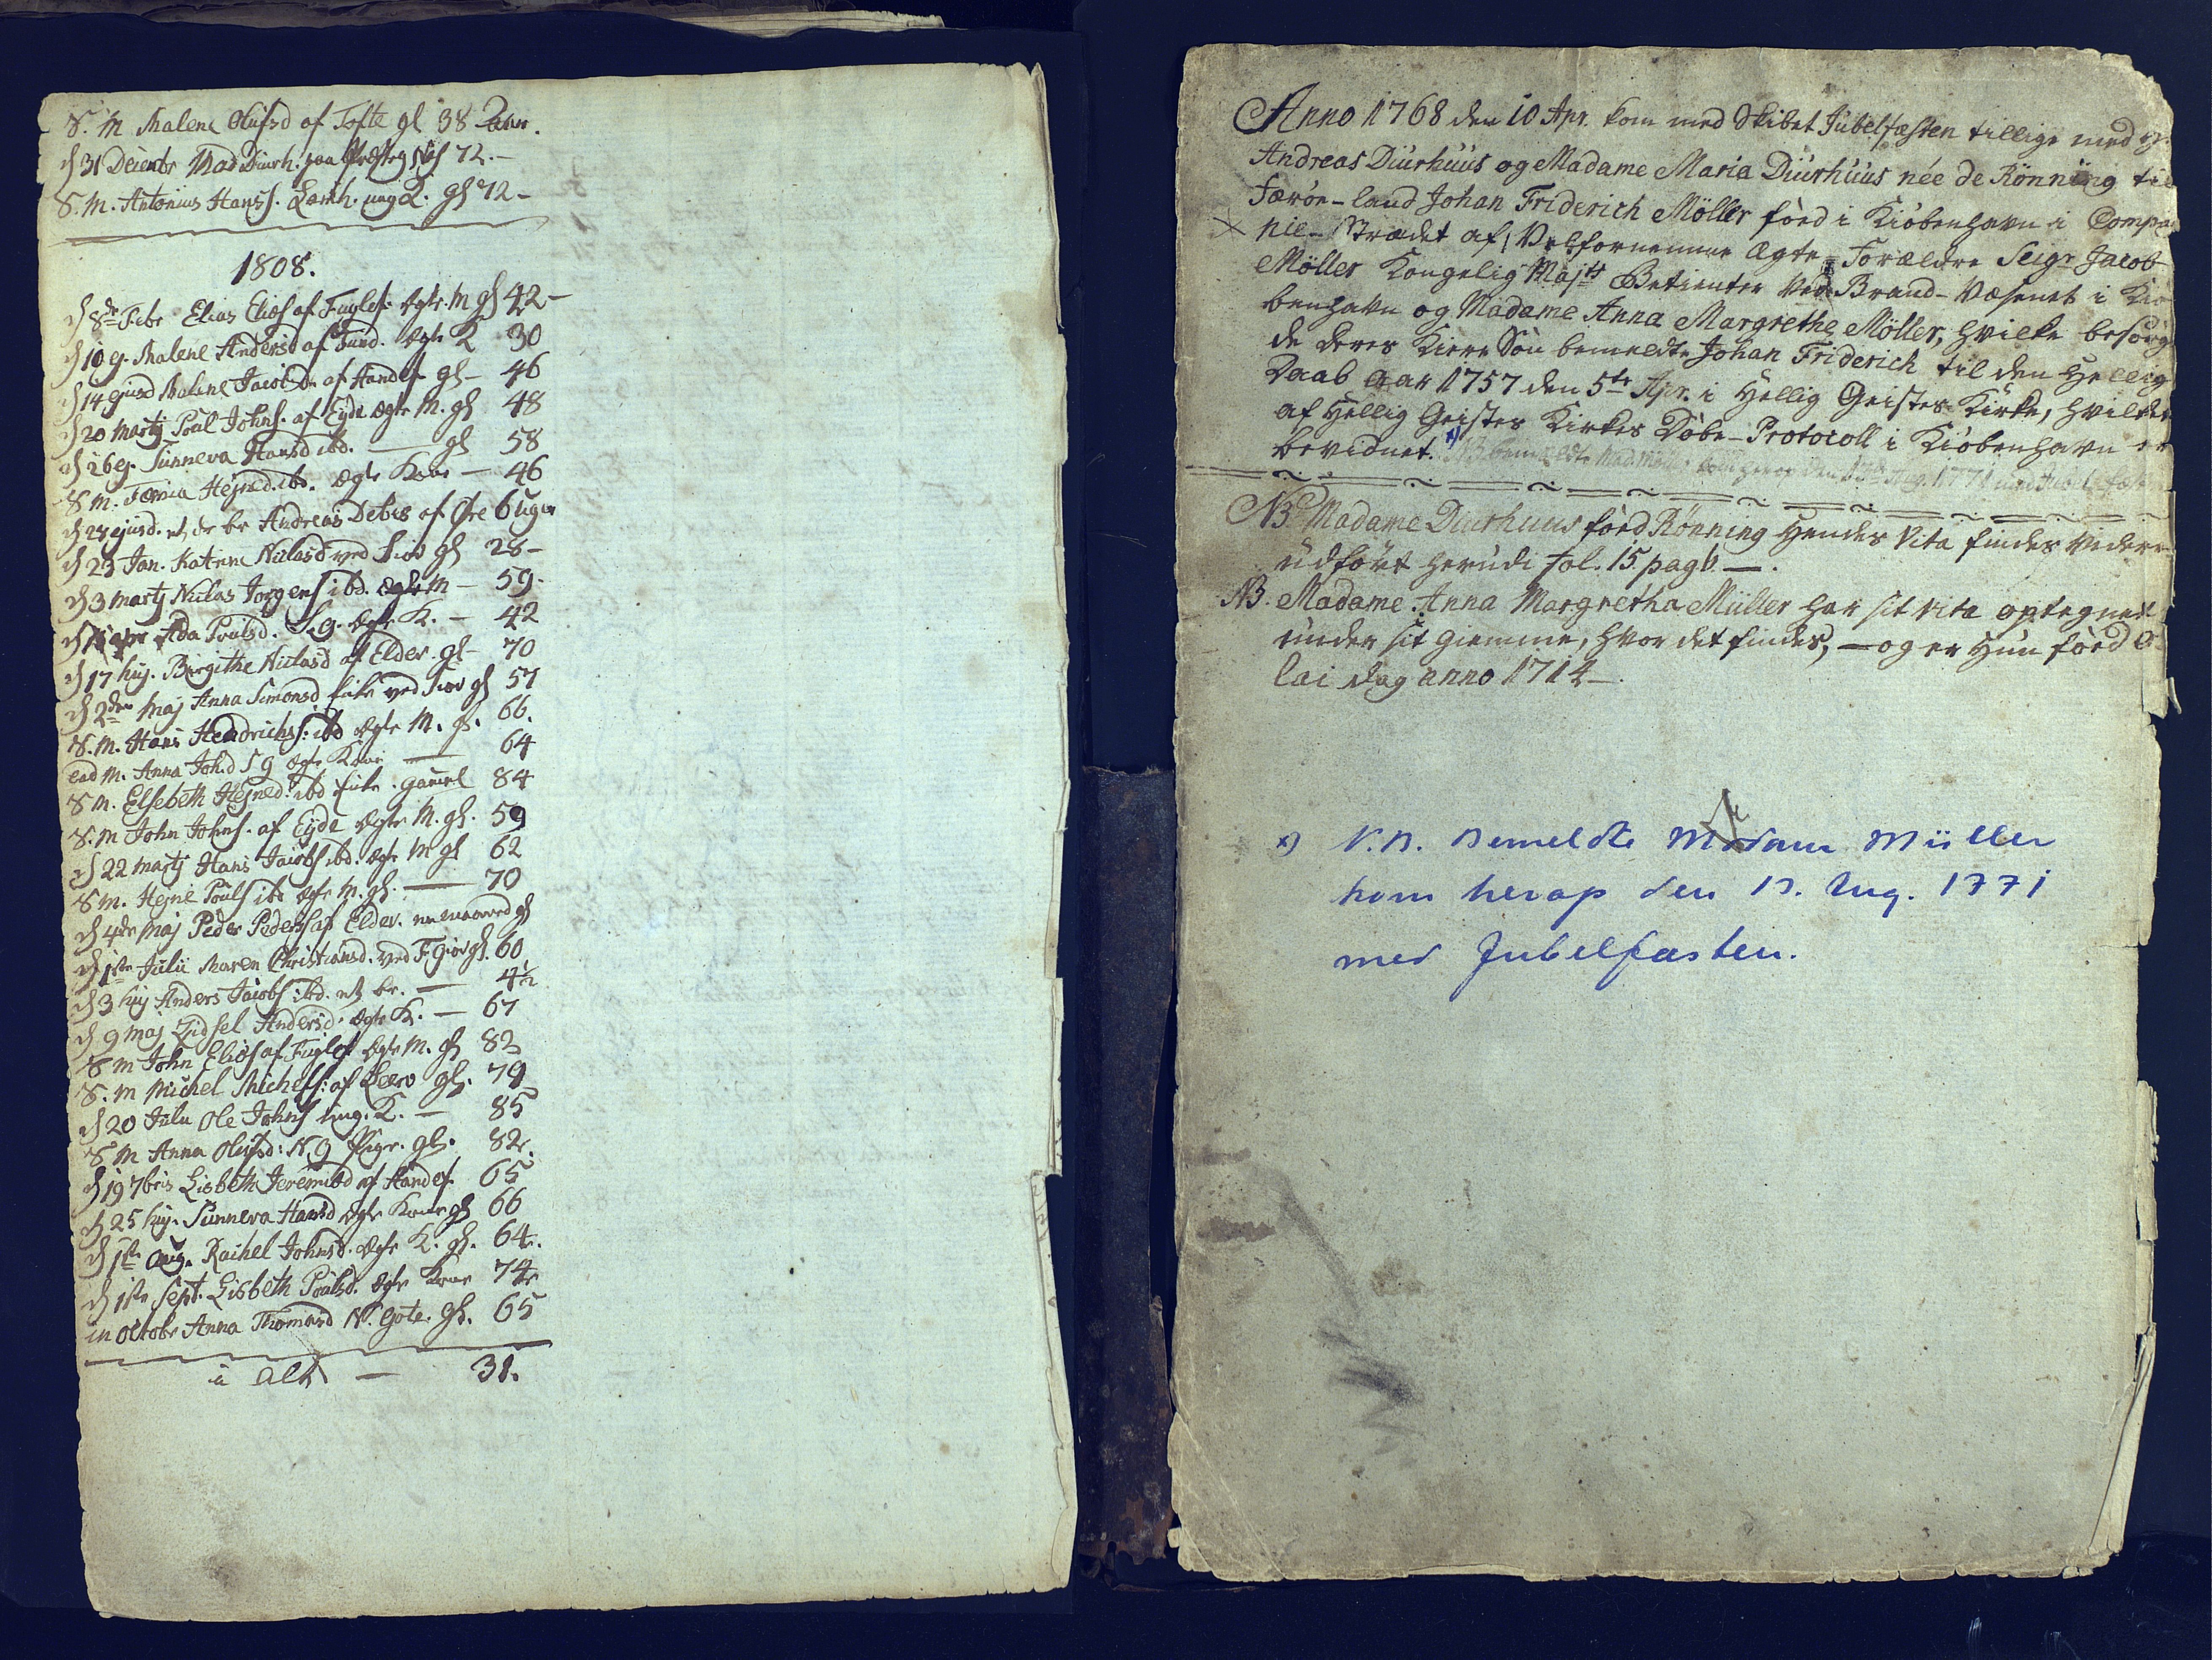 S. M Malene Olufsd af Tofte gl 38 Aar.
d 31 Decembr Mad Diurh. paa Præsteg Næs 72.-
S. M. Antonius Hanss. Lamh. ung K. gl 72-
1808.
d 8de Febr Elias Elias af Fuglef. Ægte M gl 42-
d 10 ej. Malene Andersd af Fund. Ægte K 30
d 14 ejusd Malene Jacobsd. af Handef gl- 46
d 20 Martj Poul Johns. af Eyde Ægte M. gl 48
d 26 ej. Sunneva Hansd ibd. — gl 58
S M. Hejned. ibd. Ægte Kone — 46
d 28 ejusd. et br Andreas Debes af Øre 6 uger
d 23 Jan. Katrine Niclasd ved Siov gl 28-
d 3 Martj Niclas Jorgens ibd. Ægte M — 59.
d Ada Poulsd. S.g. Ægte K. — 42
d 17 huj. Birgithe Niclasd af Elder. gl- 70
d 2den Maj Anna Simonsd Enke ved Siov gl 57
S. M. Hans Hendrichs: ibd Ægte M. gl. 66.
ead M. Anna Joh.d S g Ægte Kone — 64
S M. Elsebeth Hejned. ibd Enke. gamel 84
S. M John Johns. af Eyde Ægte M. gl. 59
d 22 Martj Hans Jacobs ibd. Ægte M gl 62
S M. Hejne Pouls ibd Ægte M. gl. — 70
d 4de Maj Peder Peders af Elder. gl
d 1ste Julii Maren Christiansd. ved F. Giov gl. 60
d 3 huj Anders Jacobs ibd. et br. — 4½
d 9 Maj Zidsel Andersd. Ægte K. — 67
S M John Elias af Fuglef. Ægte M. gl 82
S. M Michel Michels: af Leero gl. 79
d 20 Julii Ole Johns ung. K. — 85
S M Anna Olufsd: N. g Pige. gl. 82.
d 19 7bris Lisbeth Jeremiasd af Handef. 65
d 25 huj. Sunneva Hansd Ægte Kone gl 66
d 1ste Aug. Rachel Johnsd. Ægte K. gl. 64.
d 1ste Sept. Lisbeth Poulsd. Ægte Kone 74
in Octobr Anna Thomasd N. Gote. gl. 65
i alt — 31.
Anno 1768 den 10 Apr. kom med Skibet Jubelfæsten tillige med Hr.
Andreas Diurhuus og Madame Maria Diurhuus née de Rönning til
Færøe-land Johan Friderich Möller föed i Kiöbenhavn i Compa
nie-Strædet af Velfornemme Ægte-Forældre Seigr Jacob
Möller Kongelig Majts Betienter ved Brand-Væsenet i Kiö
benhavn og Madame Anna Margrethe Möller, hvilke besörg
de deres Kiere Sön bemeldte Johan Friderich til den Hellig
Daab Aar 1757 den 5te Apr. i Hellig Geistes Kirke, hvilket
af Hellig Geistes Kirkes Döbe-Protocoll i Kiöbenhavn er
bevidnet. x) NB bemeldte Mad. Möller kom herop den 13de Aug. 1771 med Jubelfæs
NB Madame Diurhuus föed Rönning Hendes Vita findes videre
udfört herudi fol. 15 pag b. —.
NB. Madame Anna Margretha Müller har sit vita optegnet
under sit giemme, hvor det findes, — og er Hun föed O
lai dag anno 1714—.
x) N.B. Bemeldte Madame Müller
kom herop den 13. Aug. 1771
med Jubelfæsten.